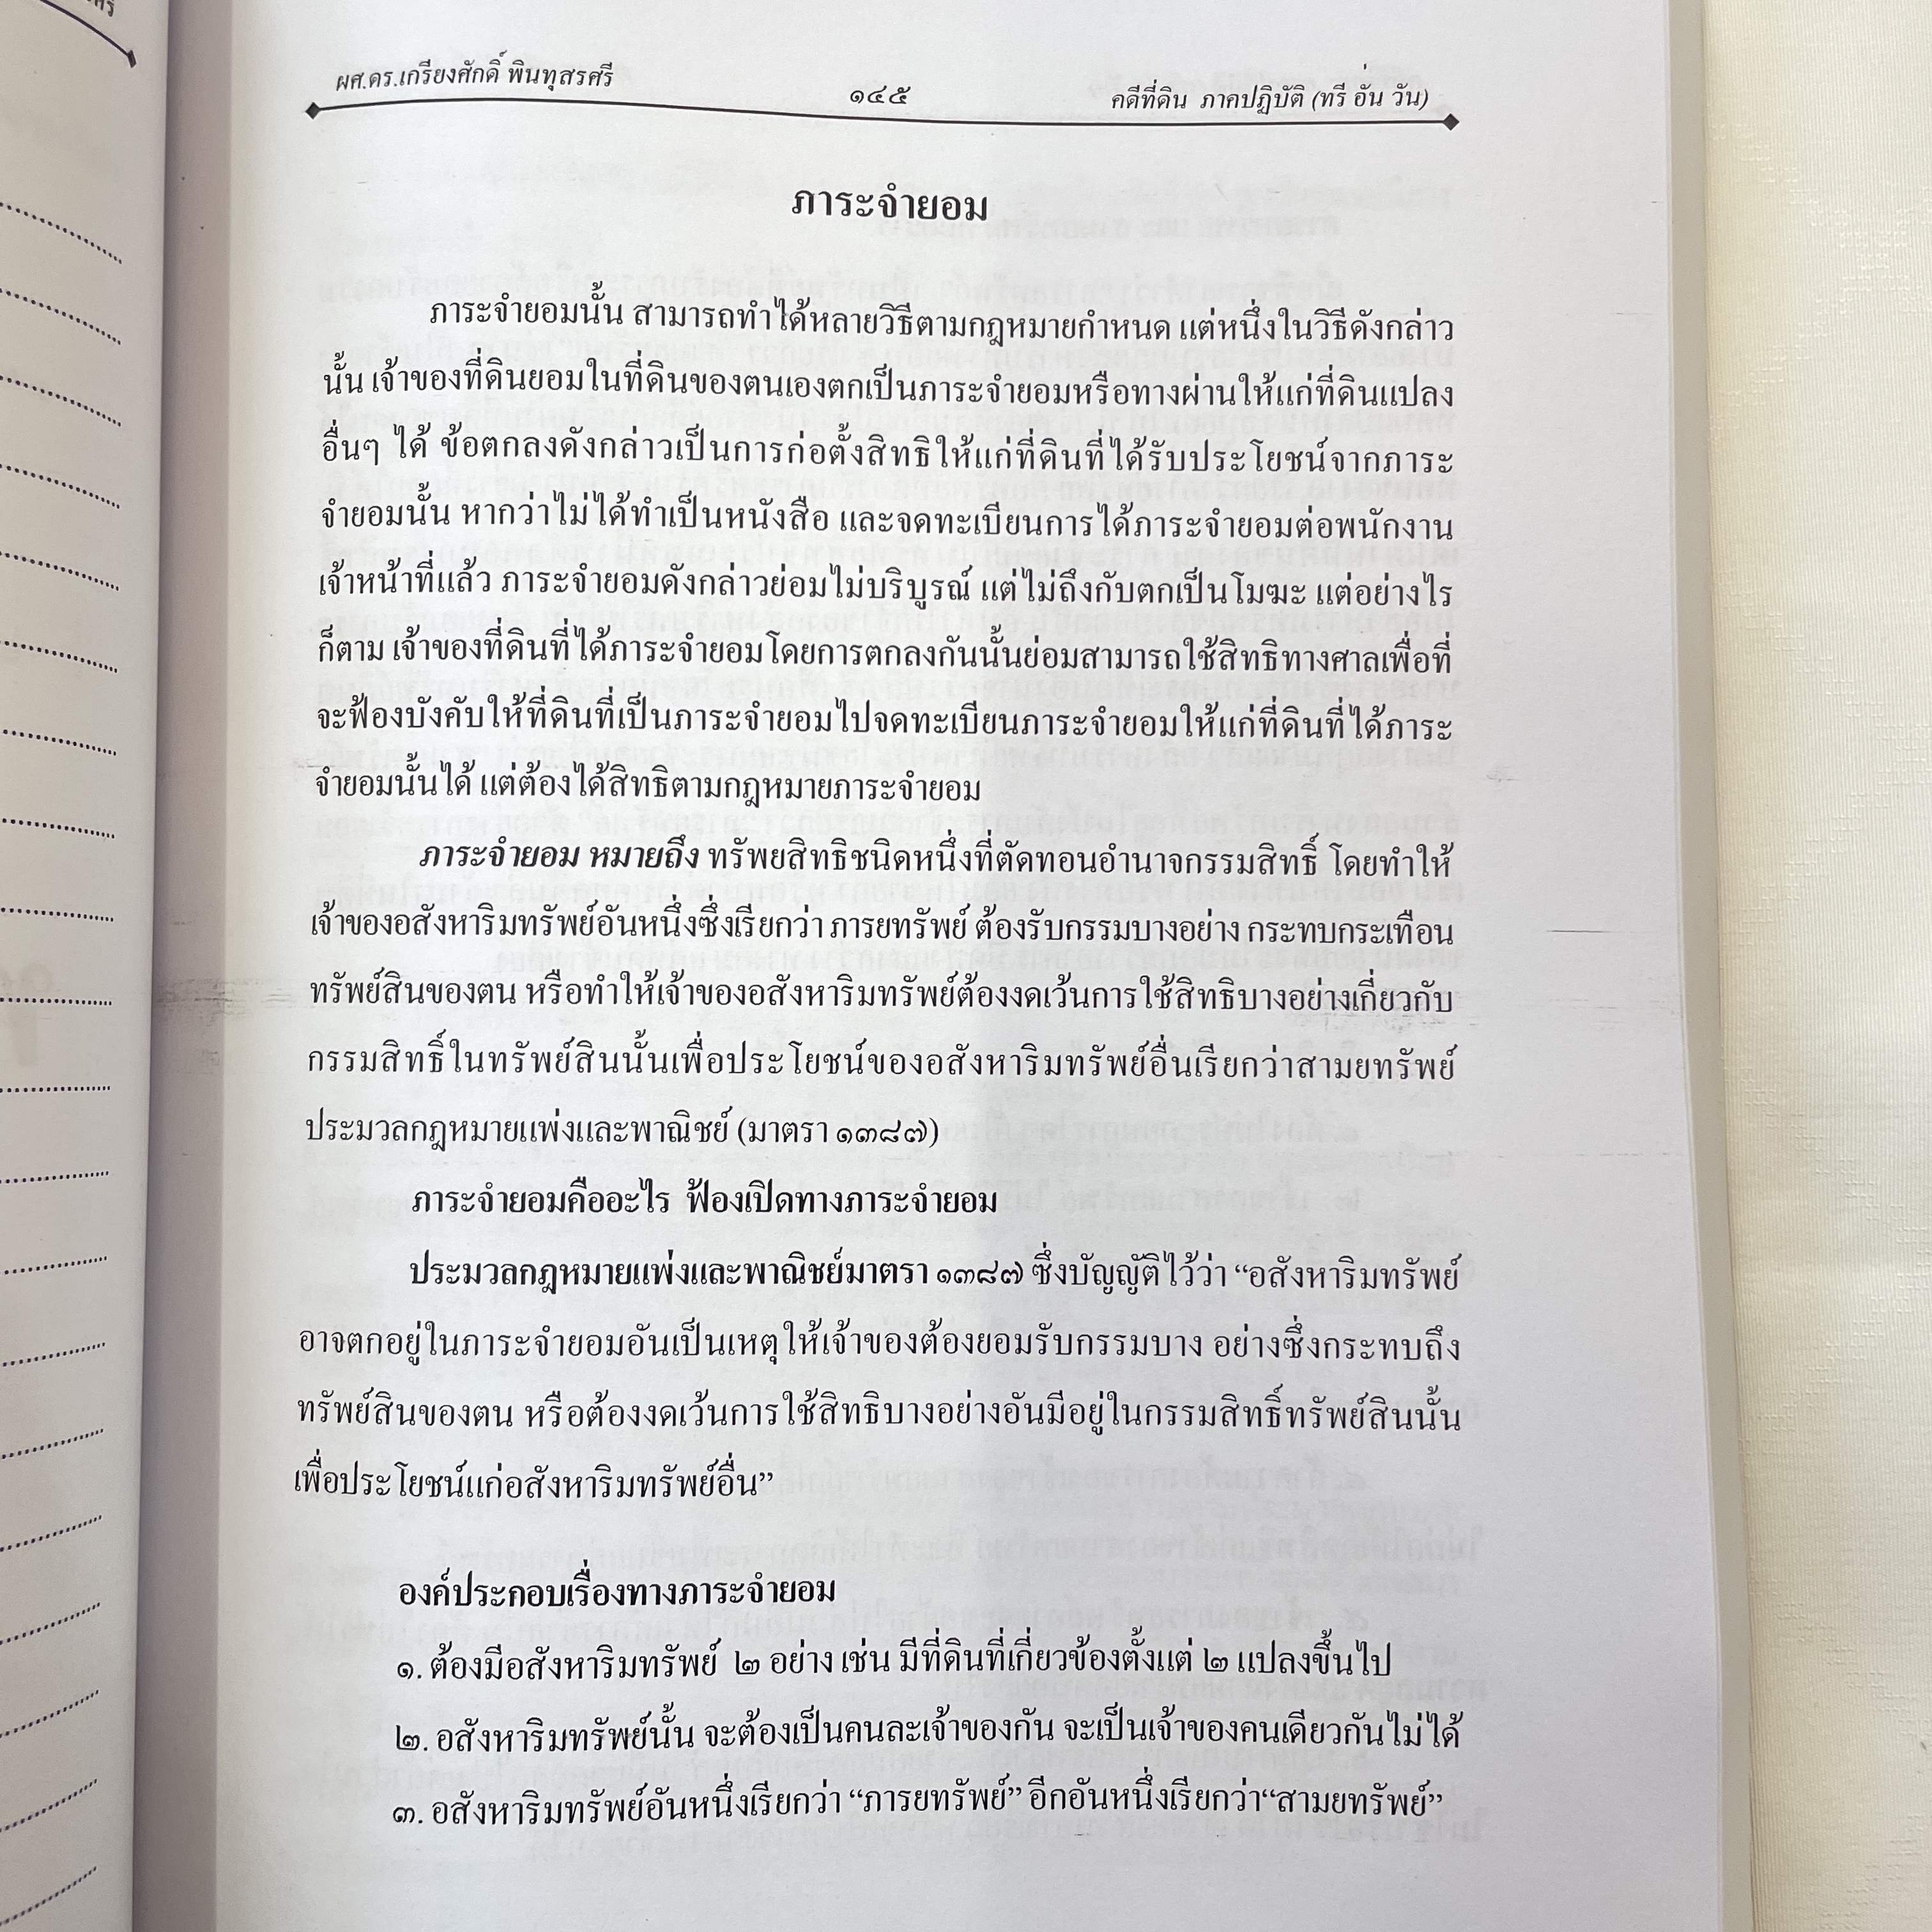 ผศ.ดร.เกรียงศักดิ์ พินทุสรศรี ๑๔๕ คดีที่ดิน ภาคปฏิบัติ (ทรี อ่ัน วัน)
ภาระจำยอม
ภาระจำยอมนั้น สามารถทำได้หลายวิธีตามกฎหมายกำหนด แต่หนึ่งในวิธีดังกล่าว
นั้น เจ้าของที่ดินยอมในที่ดินของตนเองตกเป็นภาระจำยอมหรือทางผ่านให้แก่ที่ดินแปลง
อื่นๆ ได้ ข้อตกลงดังกล่าวเป็นการก่อตั้งสิทธิให้แก่ที่ดินที่ได้รับประโยชน์จากภาระ
จำยอมนั้น หากว่าไม่ได้ทำเป็นหนังสือ และจดทะเบียนการได้ภาระจำยอมต่อพนักงาน
เจ้าหน้าที่แล้ว ภาระจำยอมดังกล่าวย่อมไม่บริบูรณ์ แต่ไม่ถึงกับตกเป็นโมฆะ แต่อย่างไร
ก็ตาม เจ้าของที่ดินที่ได้ภาระจำยอมโดยการตกลงกันนั้นย่อมสามารถใช้สิทธิทางศาลเพื่อที่
จะฟ้องบังคับให้ที่ดินที่เป็นภาระจำยอมไปจดทะเบียนภาระจำยอมให้แก่ที่ดินที่ได้ภาระ
จำยอมนั้นได้ แต่ต้องได้สิทธิตามกฎหมายภาระจำยอม
ภาระจำยอม หมายถึง ทรัพยสิทธิชนิดหนึ่งที่ตัดทอนอำนาจกรรมสิทธิ์ โดยทำให้
เจ้าของอสังหาริมทรัพย์อันหนึ่งซึ่งเรียกว่า ภารยทรัพย์ ต้องรับกรรมบางอย่าง กระทบกระเทือน
ทรัพย์สินของตน หรือทำให้เจ้าของอสังหาริมทรัพย์ต้องงดเว้นการใช้สิทธิบางอย่างเกี่ยวกับ
กรรมสิทธิ์ในทรัพย์สินนั้นเพื่อประโยชน์ของอสังหาริมทรัพย์อื่นเรียกว่าสามยทรัพย์
ประมวลกฎหมายแพ่งและพาณิชย์ (มาตรา ๑๓๘๗)
ภาระจำยอมคืออะไร ฟ้องเปิดทางภาระจำยอม
ประมวลกฎหมายแพ่งและพาณิชย์มาตรา ๑๓๘๗ ซึ่งบัญญัติไว้ว่า “อสังหาริมทรัพย์
อาจตกอยู่ในภาระจำยอมอันเป็นเหตุให้เจ้าของต้องยอมรับกรรมบาง อย่างซึ่งกระทบถึง
ทรัพย์สินของตน หรือต้องงดเว้นการใช้สิทธิบางอย่างอันมีอยู่ในกรรมสิทธิ์ทรัพย์สินนั้น
เพื่อประโยชน์แก่อสังหาริมทรัพย์อื่น”
องค์ประกอบเรื่องทางภาระจำยอม
๑. ต้องมีอสังหาริมทรัพย์ ๒ อย่าง เช่น มีที่ดินที่เกี่ยวข้องตั้งแต่ ๒ แปลงขึ้นไป
๒. อสังหาริมทรัพย์นั้น จะต้องเป็นคนละเจ้าของกัน จะเป็นเจ้าของคนเดียวกันไม่ได้
๓. อสังหาริมทรัพย์อันหนึ่งเรียกว่า “ภารยทรัพย์” อีกอันหนึ่งเรียกว่า“สามยทรัพย์”